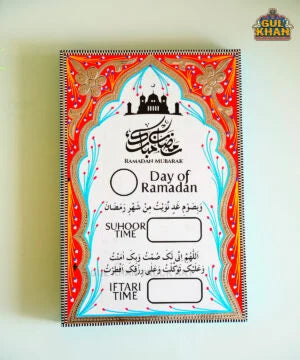 GUL
KHAN
رمضان مبارك
RAMADAN MUBARAK
Day of
Ramadan
وَبِصَوْمِ غَدٍ نَّوَيْتُ مِنْ شَهْرِ رَمَضَانَ
SUHOOR
TIME
اَللّٰهُمَّ اِنِّی لَکَ صُمْتُ وَبِکَ اٰمَنْتُ
وَعَلَيْکَ تَوَکَّلْتُ وَعَلٰی رِزْقِکَ اَفْطَرْتُ
IFTARI
TIME